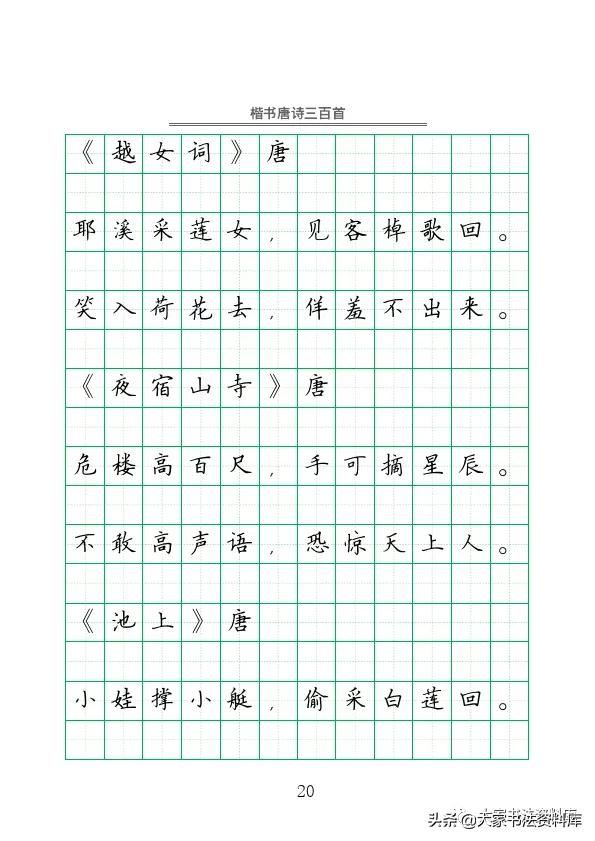 楷书唐诗三百首
《越女词》唐
耶溪采莲女，见客棹歌回。
笑入荷花去，佯羞不出来。
《夜宿山寺》唐
危楼高百尺，手可摘星辰。
不敢高声语，恐惊天上人。
《池上》唐
小娃撑小艇，偷采白莲回。
20
大家书法资料库
头条@大家书法资料库